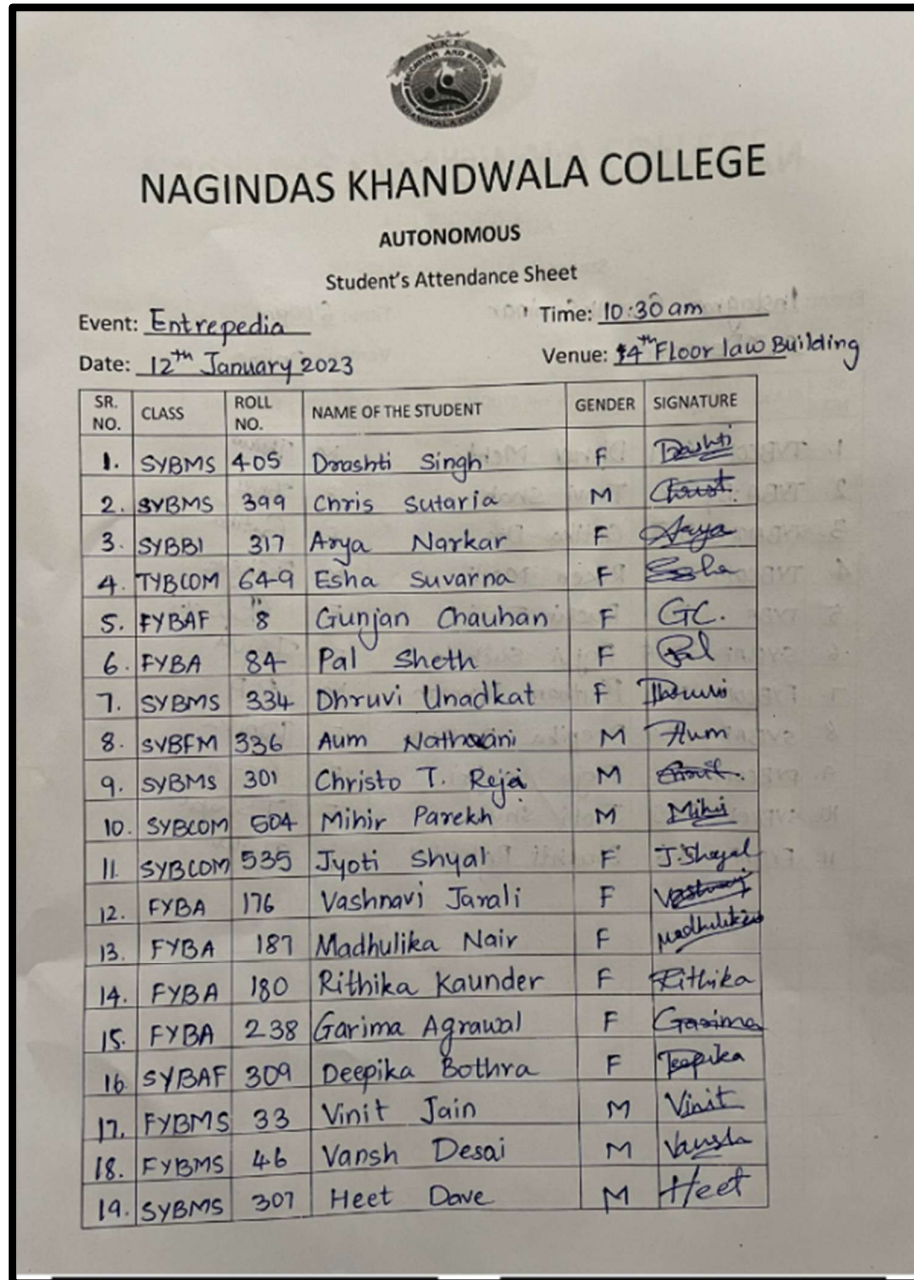 M.K.E.S.
KHANDWALA COLLEGE
NAGINDAS KHANDWALA COLLEGE
AUTONOMOUS
Student's Attendance Sheet
Event: Entrepedia Time: 10:30 am
Date: 12th January 2023 Venue: 4th Floor law Building
SR. NO. CLASS ROLL NO. NAME OF THE STUDENT GENDER SIGNATURE
1. SYBMS 405 Drashti Singh F Drashti
2. SYBMS 399 Chris Sutaria M
3. SYBBI 317 Arya Narkar F Arya
4. TYBCOM 649 Esha Suvarna F Esha
5. FYBAF 8 Gunjan Chauhan F GC.
6. FYBA 84 Pal Sheth F Pal
7. SYBMS 334 Dhruvi Unadkat F Dhruvi
8. SYBFM 336 Aum Nathwani M Aum
9. SYBMS 301 Christo T. Reja M
10. SYBCOM 504 Mihir Parekh M Mihir
11. SYBCOM 535 Jyoti Shyal F J.Shyal
12. FYBA 176 Vashnavi Jarali F
13. FYBA 187 Madhulika Nair F Madhulika
14. FYBA 180 Rithika Kaunder F Rithika
15. FYBA 238 Garima Agrawal F Garima
16 SYBAF 309 Deepika Bothra F Deepika
17. FYBMS 33 Vinit Jain M Vinit
18. FYBMS 46 Vansh Desai M Vansh
19. SYBMS 307 Heet Dave M Heet